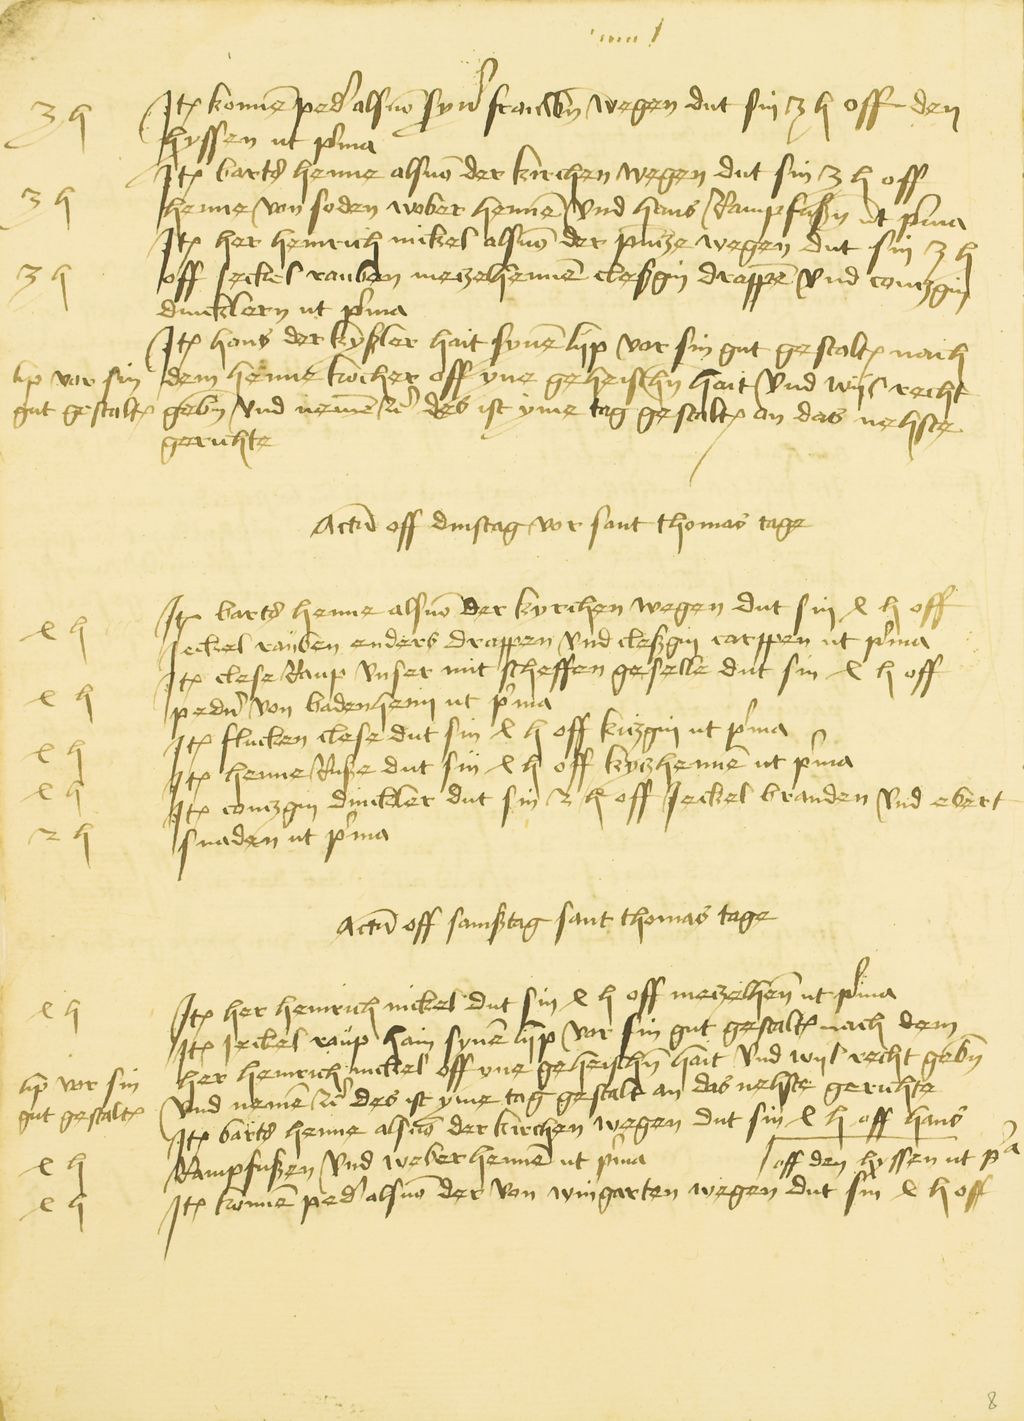 3 h
Itē konnē ped' alsūo syn' frauwēn wegen dut sin 3 h off den
hyssen ut p'ma
3 h
Itē bartß henne alsūo der kirchen wegen dut sin 3 h off
henne von soden wober hennē und hans Rampfußen ut p'ma
3 h
Itē her heinrich nickel alsūo der pmze wegen dut sin 3 h
off Jeckel rauben meczelhennē cleßgin drappē und conczgin
dincklern ut p'ma
lip vor sin
gut gestalt
Itē hans der keßler hait synē lijp vor sin gut gestalt nach
dem henne kocher off yne geheischn hait und wijl recht
gebn und nemē des ist yme tag gestalt an das nehste
gerichte
Actū off dinstag vor sant thomas tage
l h
Itē bartß henne alsūo der kyrchen wegen dut sin l h off
Jeckel rauben enders drappen und cleßgin carppen ut p'ma
l h
Itē clese Raup unser mit scheffen geselle dut sin l h off
ped'n von badenheim ut p'ma
l h
Itē flucken clese dut sin l h off kiczgin ut p'ma
l h
Itē henne Ruße dut sin l h off kyczhennē ut p'ma
2 h
Itē conczgin dinckler dut sin 2 h off Jeckel branden und ebert
snaden ut p'ma
Actū off samßtag sant thomas tage
l h
Itē her heinrich nickel dut sin l h off meczelhēn ut p'ma
lip vor sin
gut gestalt
Itē Jeckel raup hain synē lijp vor sin gut gestalt nach dem
her heinrich nickel off yne geheischn hait und wijl recht gebn
und nemē des ist yme tag gestalt an das nehste gerichte
l h
Itē bartß henne alsūo der kirchen wegen dut sin l h off hans
Rampfußen und weber hennē ut p'ma
l h
Itē konnē ped' alsūo der von wingarten wegen dut sin l h off
off den hyssen ut p'a
8